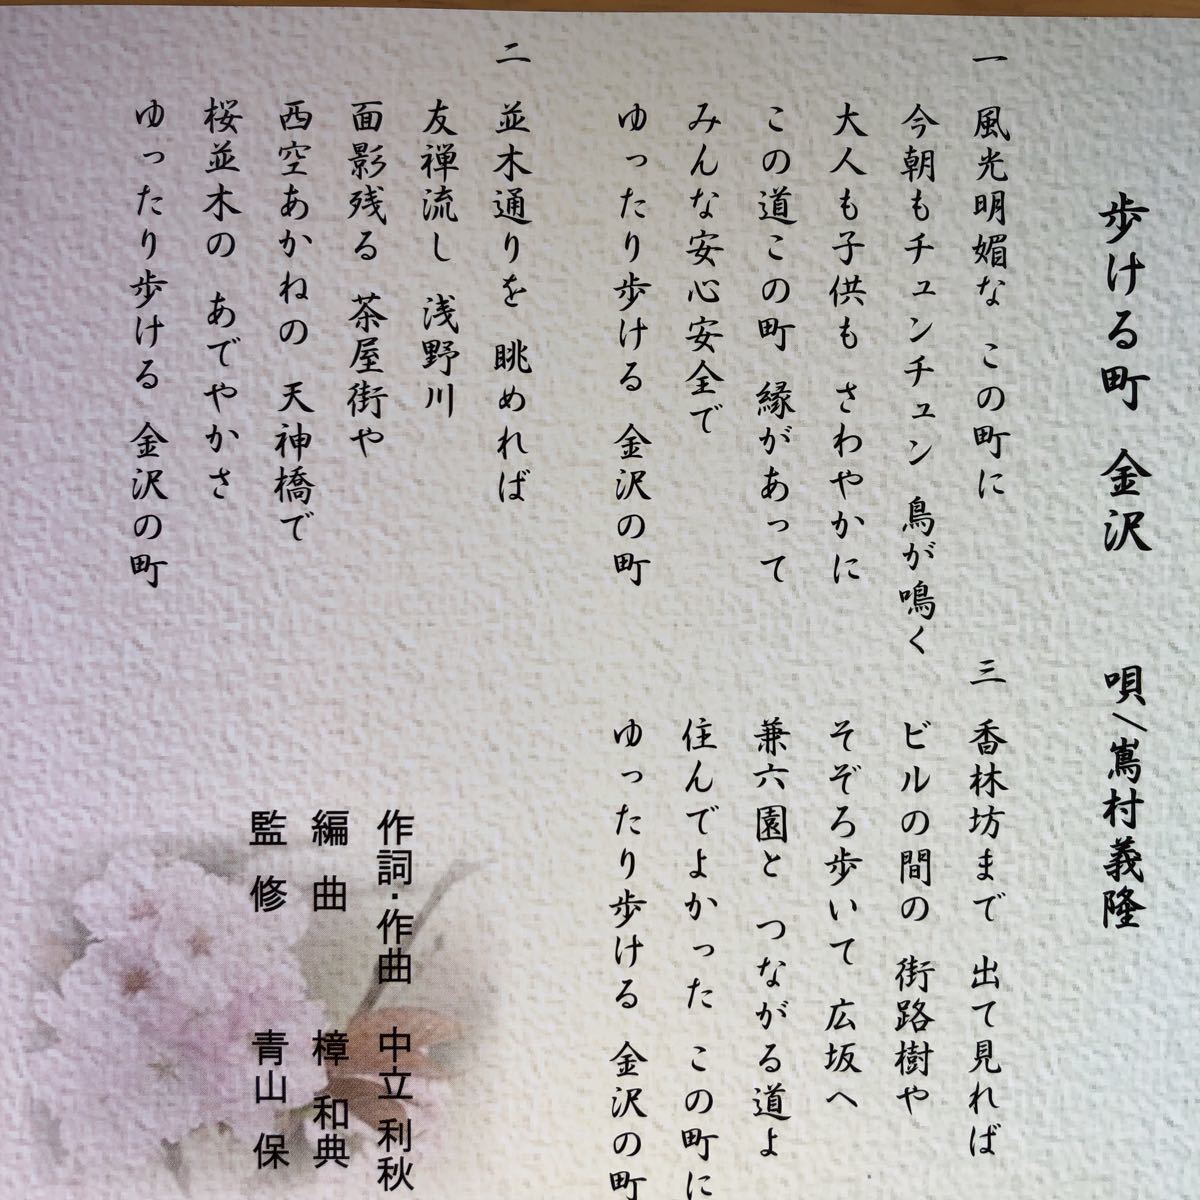 歩ける町 金沢 唄/嶌村義隆
一 風光明媚な この町に
今朝もチュンチュン 鳥が鳴く
大人も子供も さわやかに
この道この町 縁があって
みんな安心安全で
ゆったり歩ける 金沢の町
二 並木通りを 眺めれば
友禅流し 浅野川
面影残る 茶屋街や
西空あかねの 天神橋で
桜並木の あでやかさ
ゆったり歩ける 金沢の町
三 香林坊まで 出て見れば
ビルの間の 街路樹や
そぞろ歩いて 広坂へ
兼六園と つながる道よ
住んでよかった この町に
ゆったり歩ける 金沢の町
作詞・作曲 中立 利秋
編曲 樟 和典
監修 青山 保